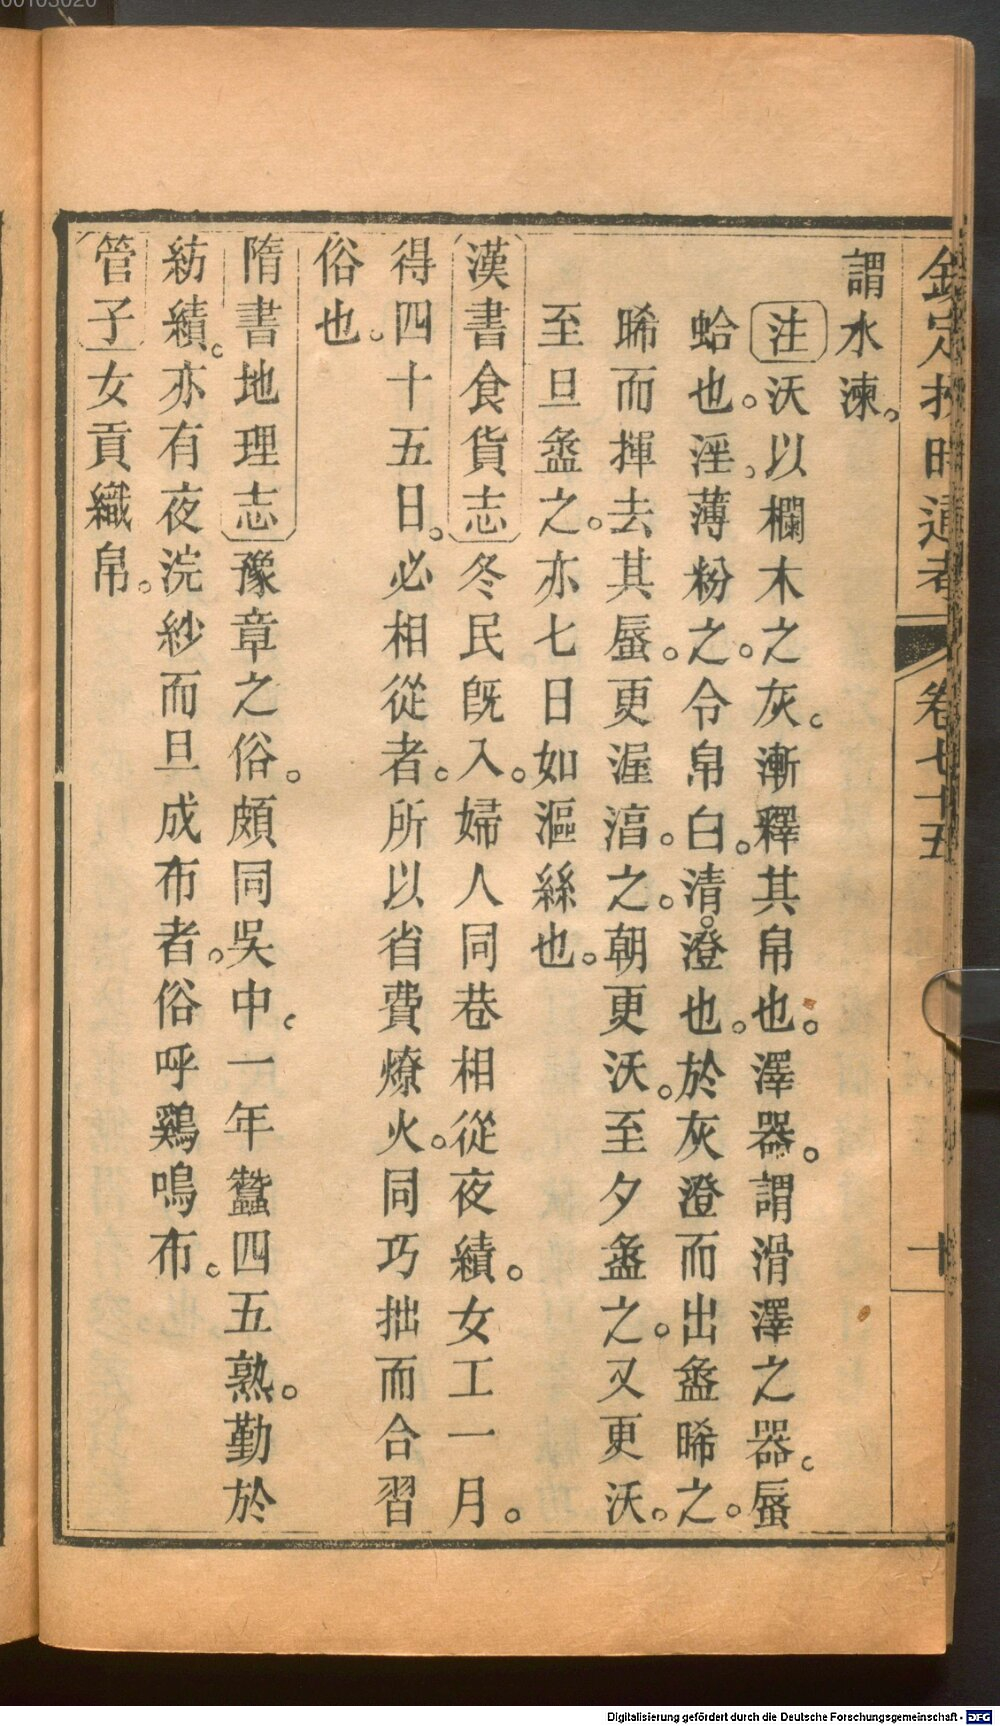 00103020
欽定授時通考 卷七十五 十
謂水湅。
注沃以欄木之灰。漸釋其帛也。澤器。謂滑澤之器。蜃
蛤也。淫。薄粉之。令帛白。清。澄也。於灰澄而出盝晞之。
晞而揮去其蜃。更渥湻之。朝更沃。至夕盝之。又更沃。
至旦盝之。亦七日如漚絲也。
漢書食貨志冬民旣入。婦人同巷相從夜績。女工一月。
得四十五日。必相從者。所以省費燎火。同巧拙而合習
俗也。
隋書地理志豫章之俗。頗同吳中。一年蠶四五熟。勤於
紡績。亦有夜浣紗而旦成布者。俗呼鷄鳴布。
管子女貢織帛。
Digitalisierung gefördert durch die Deutsche Forschungsgemeinschaft - DFG